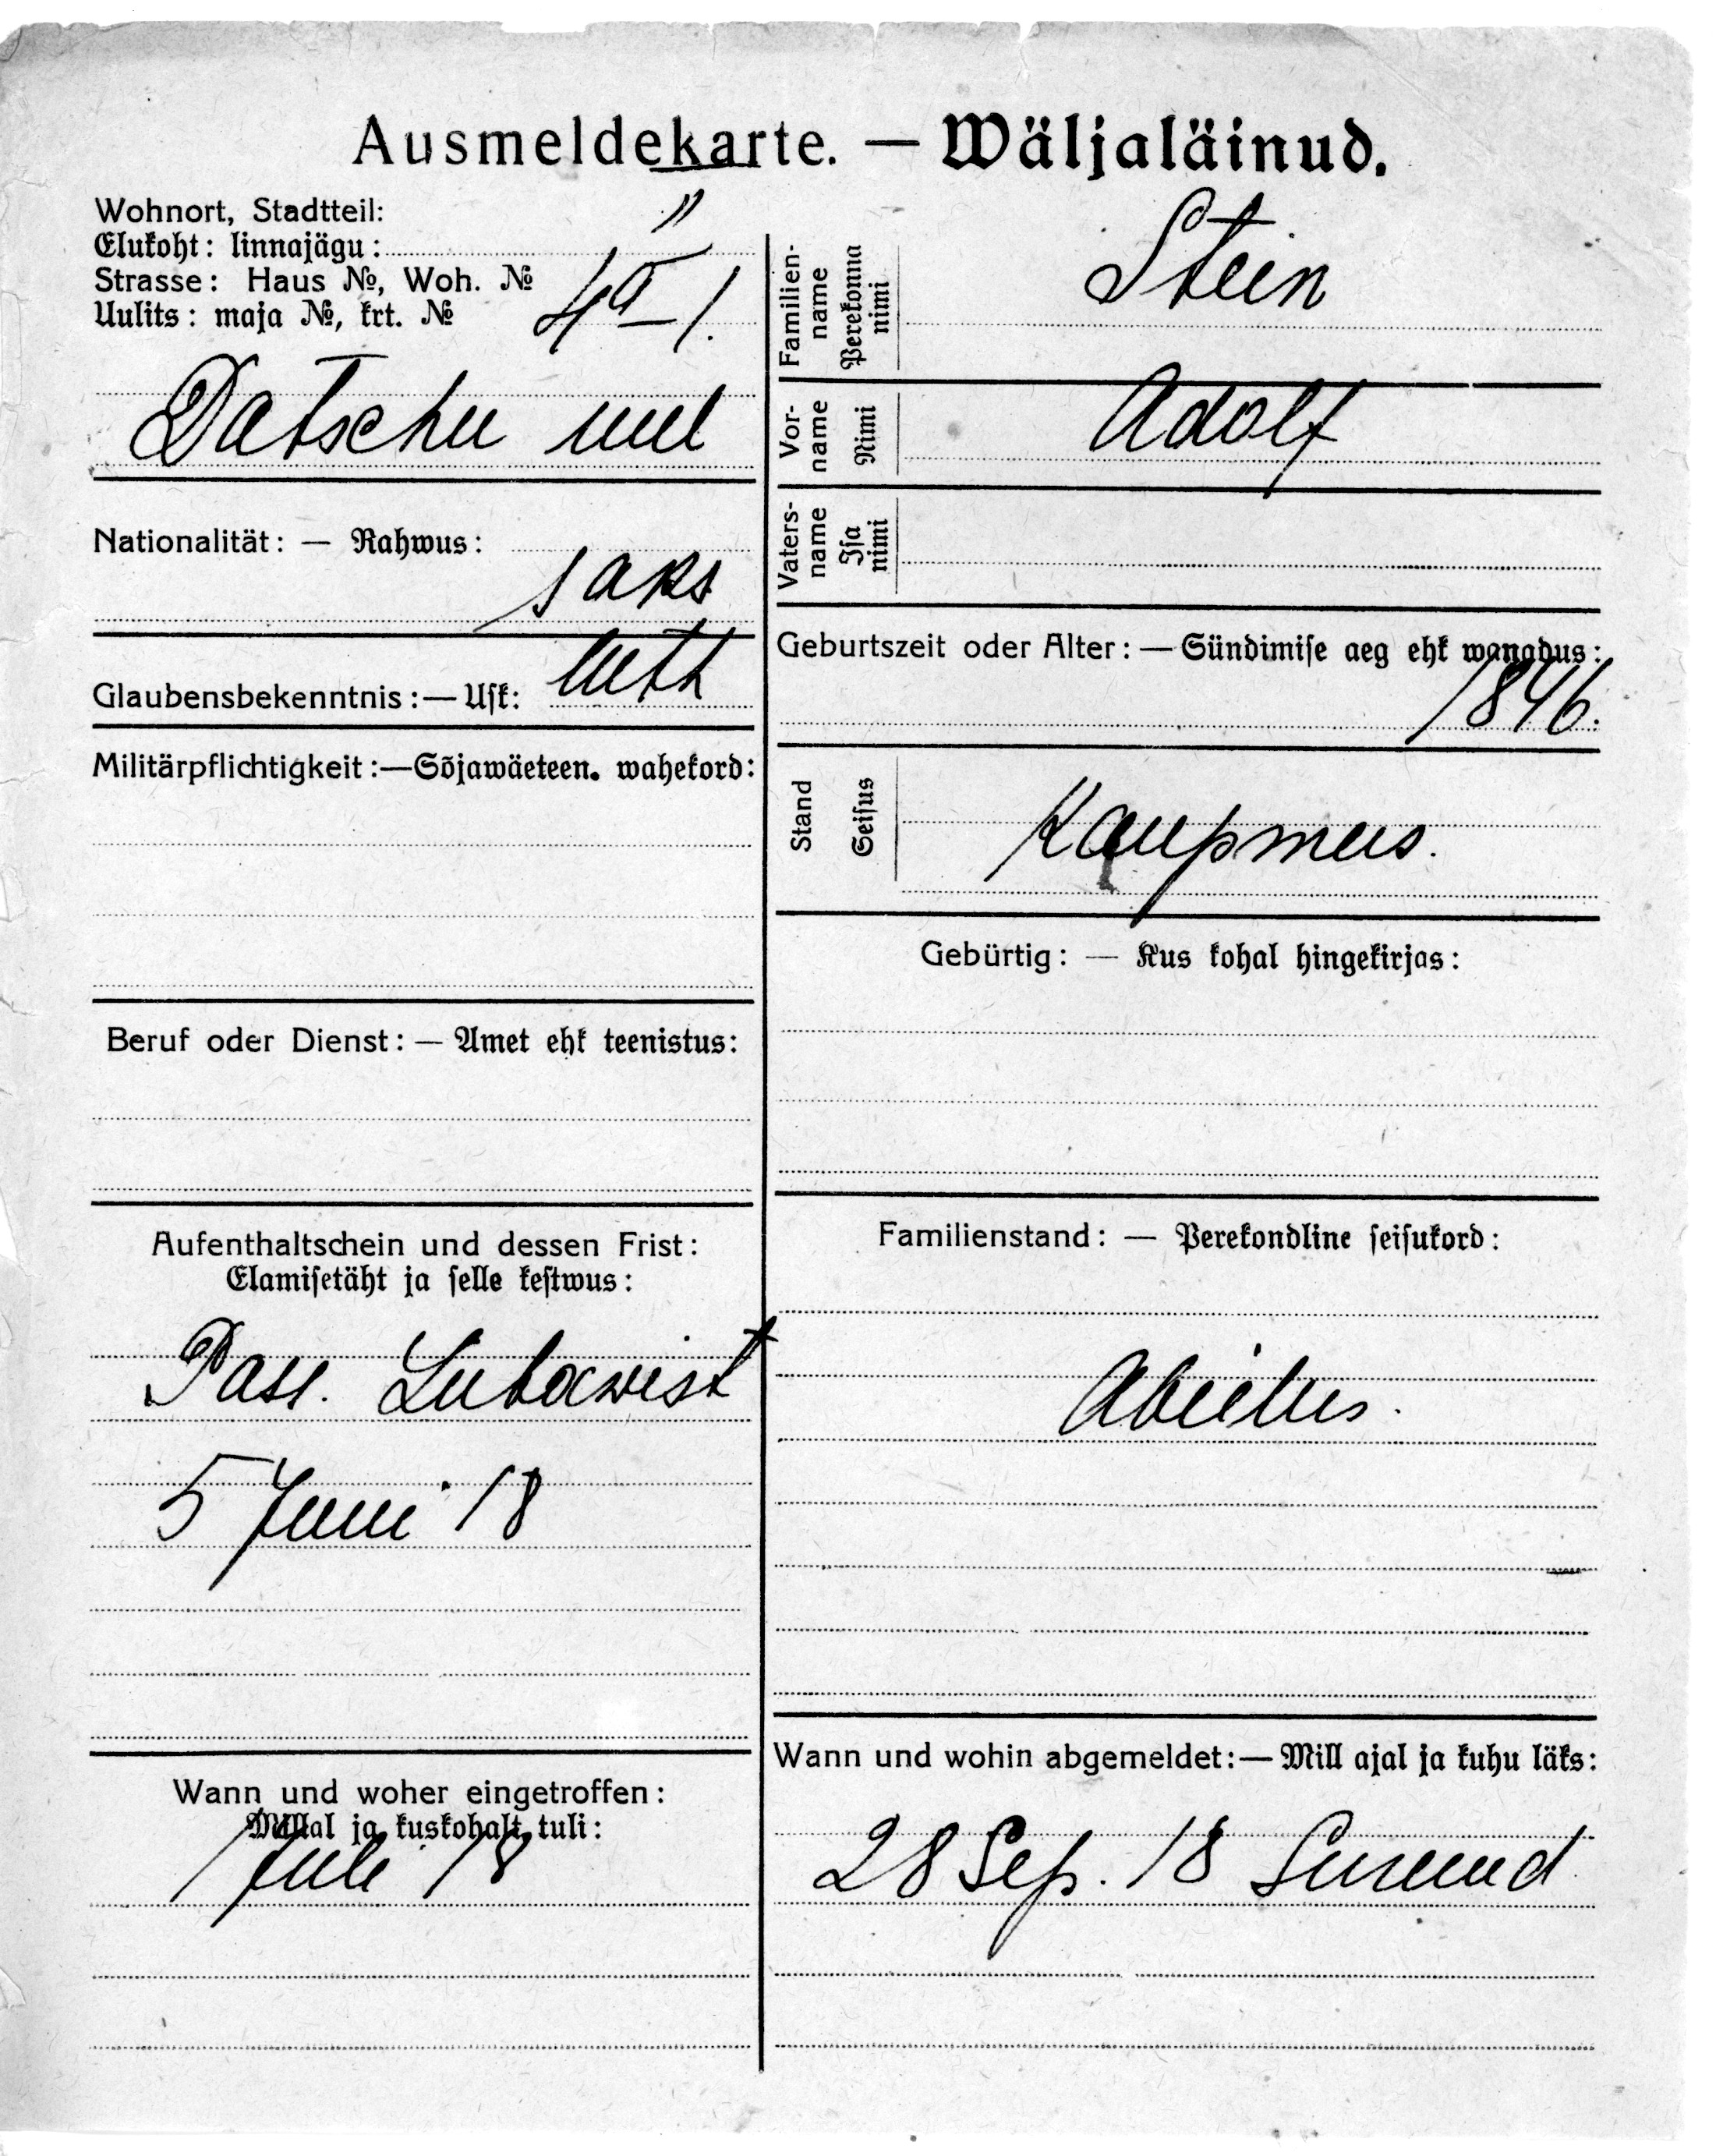 Ausmeldekarte. — Wäljaläinud.
Wohnort, Stadtteil:
Elukoht: linnajägu:
Strasse: Haus №, Woh. №
Uulits: maja №, krt. №
4a–1.
Datschu uul
Nationalität: — Rahwus:
saks
Glaubensbekenntnis: — Usk:
luth
Militärpflichtigkeit: — Sõjawäeteen. wahekord:
Beruf oder Dienst: — Amet ehk teenistus:
Aufenthaltschein und dessen Frist:
Elamisetäht ja selle kestwus:
Pass.
5 Juni 18
Wann und woher eingetroffen:
Millal ja kuskohalt tuli:
1 Juli 18
Familien-
name
Perekonna
nimi
Stein
Vor-
name
Nimi
Adolf
Vaters-
name
Isa
nimi
Geburtszeit oder Alter: — Sündimise aeg ehk wanadus:
1846.
Stand
Seisus
Kaupmees.
Gebürtig: — Kus kohal hingekirjas:
Familienstand: — Perekondline seisukord:
Abielus.
Wann und wohin abgemeldet: — Mill ajal ja kuhu läks:
28 Sep. 18 Surnud